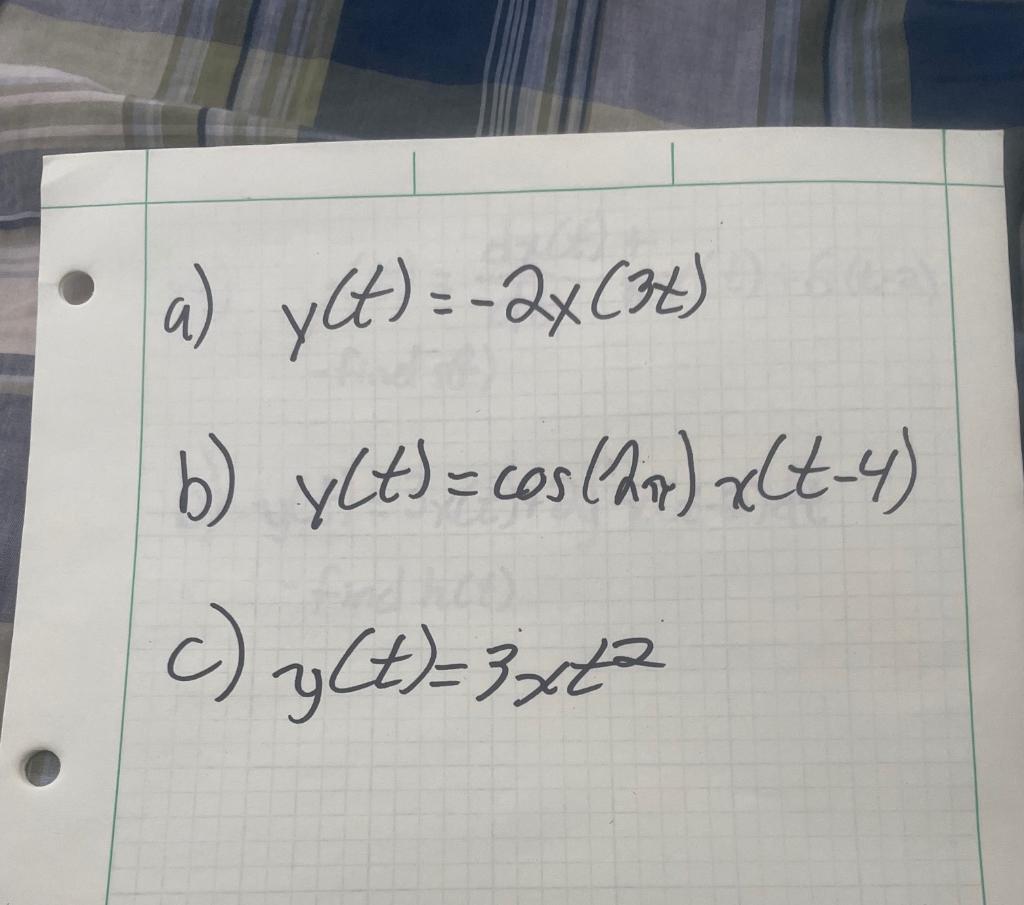 a) y(t) = -2x(3t)
b) y(t) = cos(2π) x(t-4)
c) y(t) = 3xt²